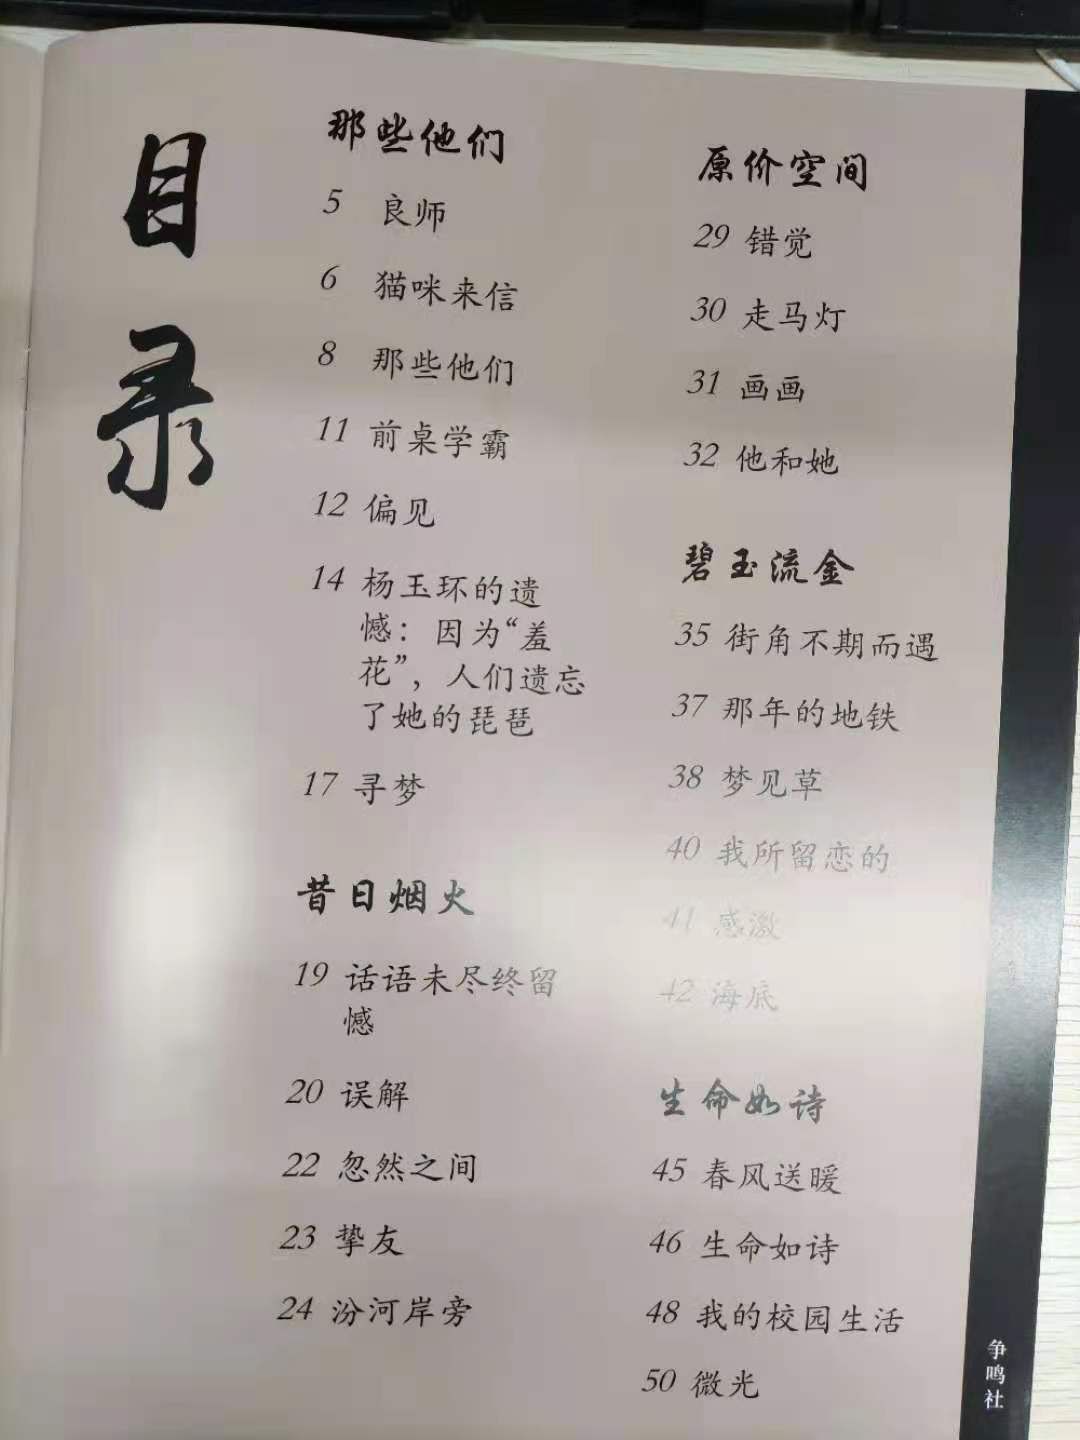 目录
那些他们
5 良师
6 猫咪来信
8 那些他们
11 前桌学霸
12 偏见
14 杨玉环的遗
憾：因为“羞
花”，人们遗忘
了她的琵琶
17 寻梦
昔日烟火
19 话语未尽终留
憾
20 误解
22 忽然之间
23 挚友
24 汾河岸旁
原价空间
29 错觉
30 走马灯
31 画画
32 他和她
碧玉流金
35 街角不期而遇
37 那年的地铁
38 梦见草
40 我所留恋的
41 感激
42 海底
生命如诗
45 春风送暖
46 生命如诗
48 我的校园生活
50 微光
争鸣社